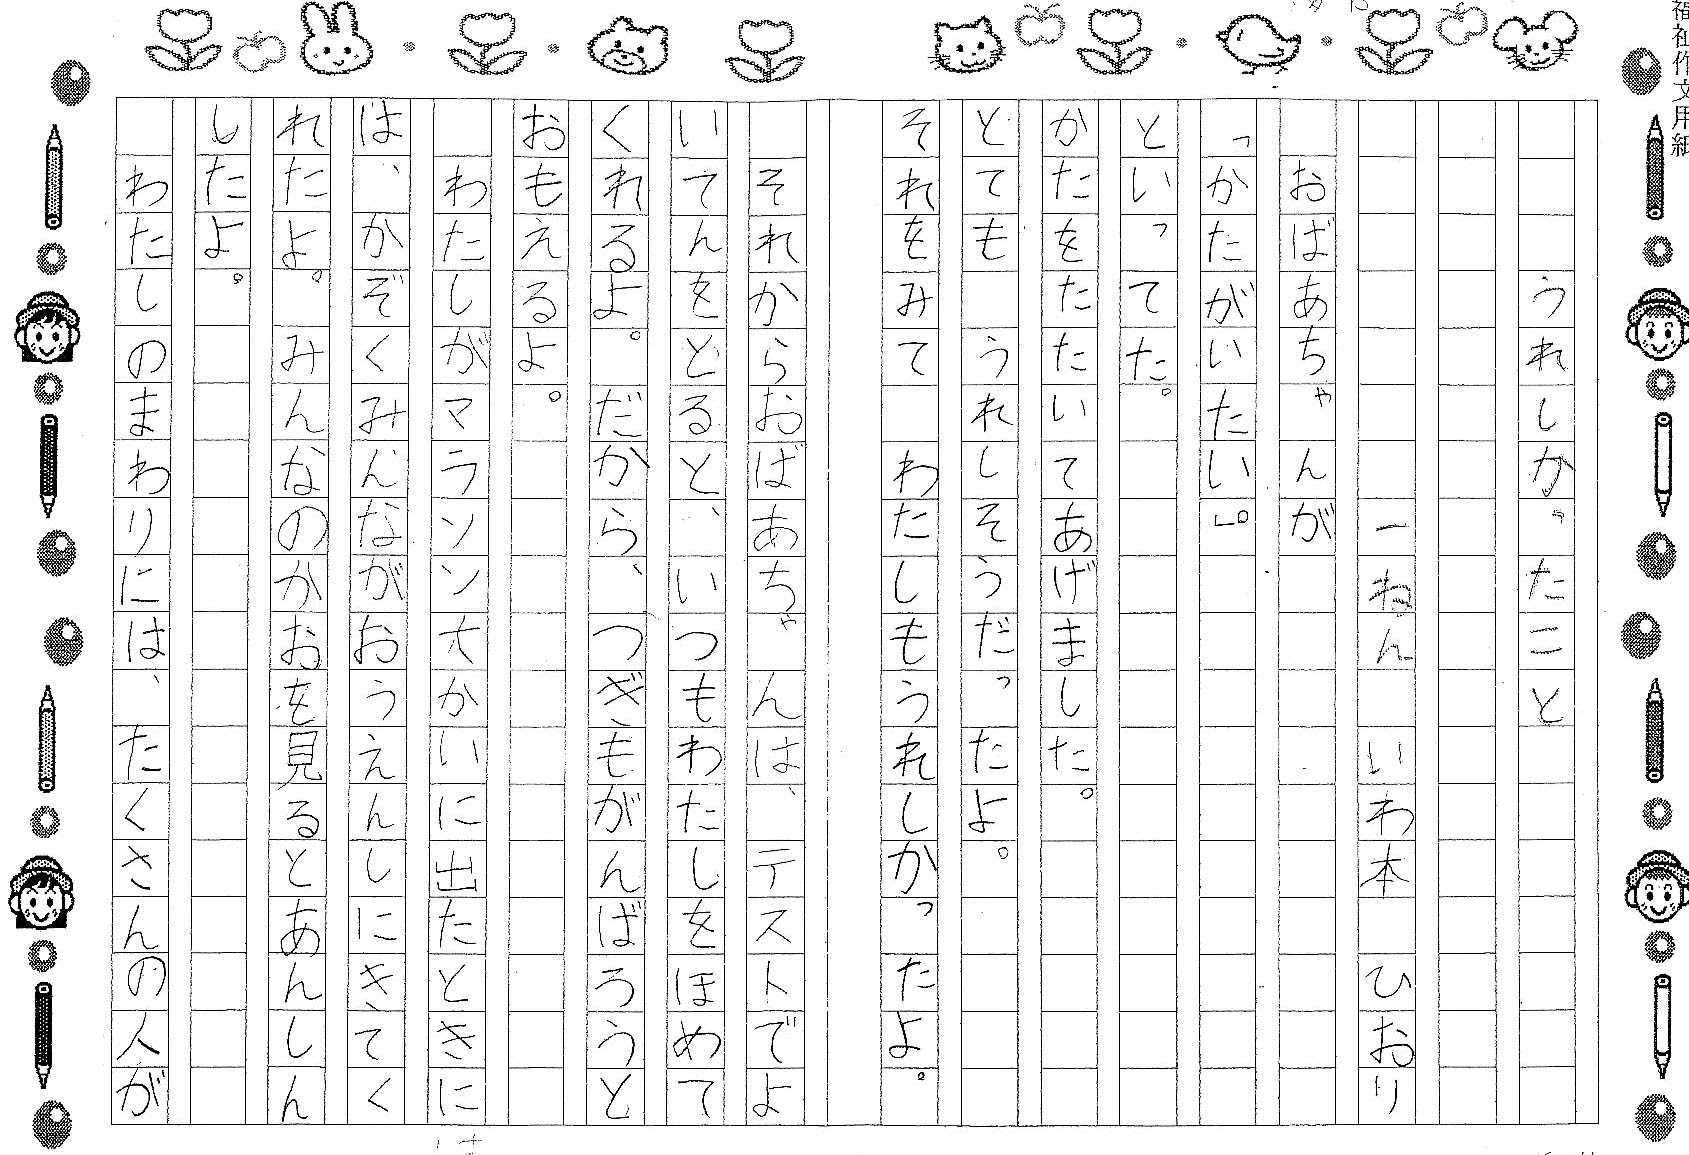 福祉作文用紙
うれしかったこと
一ねん いわ本 ひおり
おばあちゃんが
「かたがいたい」。
といってた。
かたをたたいてあげました。
とても うれしそうだったよ。
それをみて わたしもうれしかったよ。
それからおばあちゃんは、テストでよ
いてんをとると、いつもわたしをほめて
くれるよ。だから、つぎもがんばろうと
おもえるよ。
わたしがマラソン大かいに出たときに
は、かぞくみんながおうえんしにきてく
れたよ。みんなのかおを見るとあんしん
したよ。
わたしのまわりには、たくさんの人が